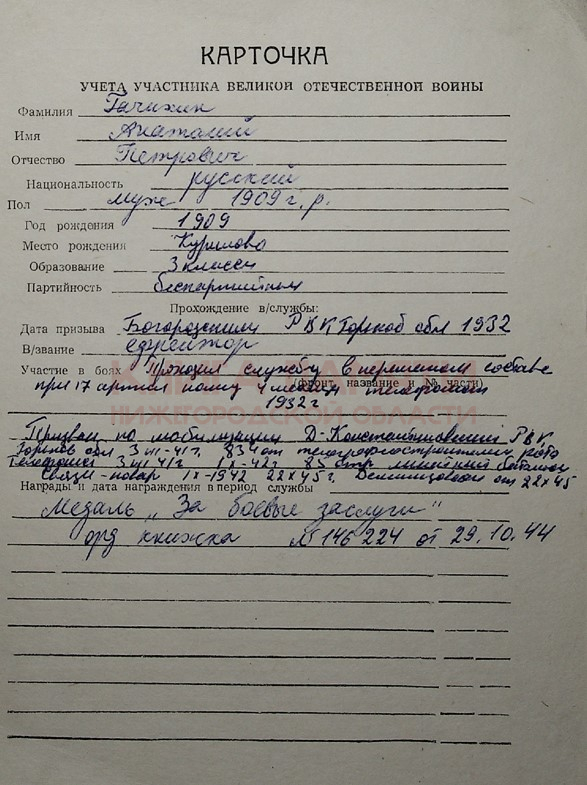 КАРТОЧКА
УЧЕТА УЧАСТНИКА ВЕЛИКОЙ ОТЕЧЕСТВЕННОЙ ВОЙНЫ
Фамилия Гачихин
Имя Анатолий
Отчество Петрович
Национальность русский
Пол муж 1909 г.р.
Год рождения 1909
Место рождения Курилово
Образование 3 класса
Партийность беспартийный
Прохождение в/службы:
Дата призыва Богородским РВК Горьков обл 1932
В/звание ефрейтор
Участие в боях Проходил службу в перемен составе
(фронт, название и № части)
при 17 артил полку телефонист
1932 г
НИЖЕГОРОДСКОЙ ОБЛАСТИ
Призван по мобилизации Д-Константиновский РВК
Горьков обл 3 VII-41г. 834 от телеграфностроительн рота
Телефонист 3 VII 41г IX-42г 85 отр линейный батальон
связи-повар IX-1942 22 X 45г. Демилизован от 22 X 45
Награды и дата награждения в период службы
Медаль „За боевые заслуги"
орд книжка № 146224 от 29.10.44